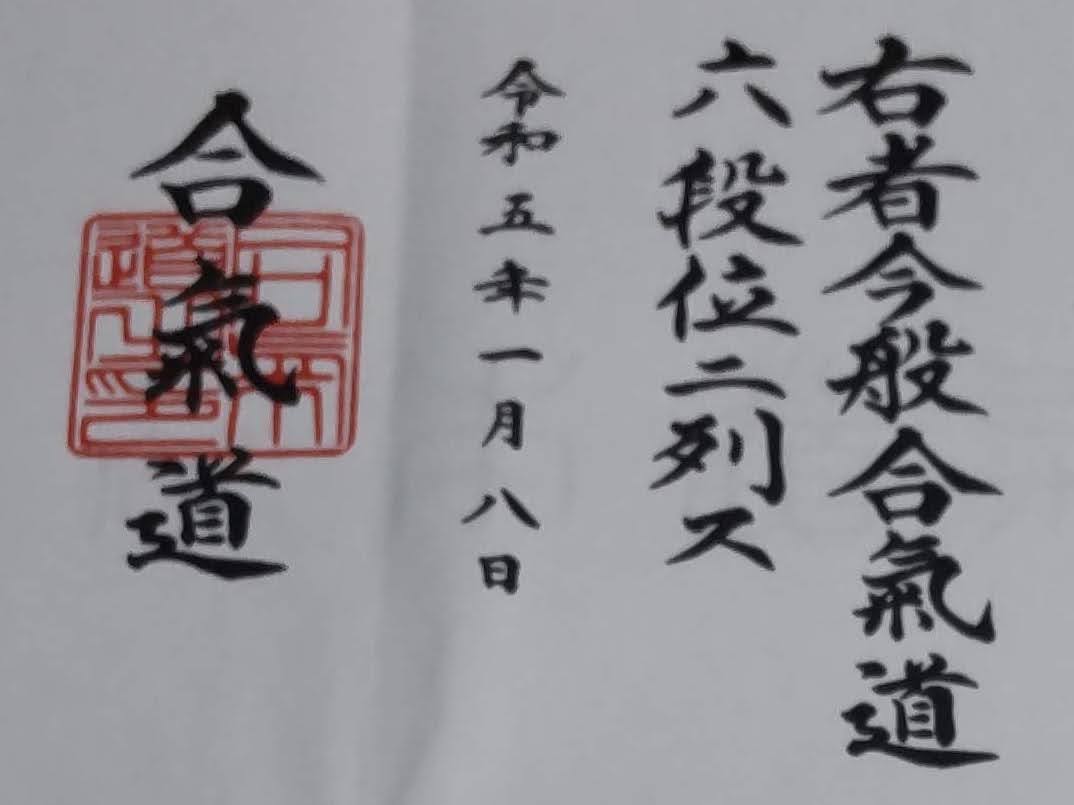 右者今般合氣道
六段位ニ列ス
令和五年一月八日
合氣道